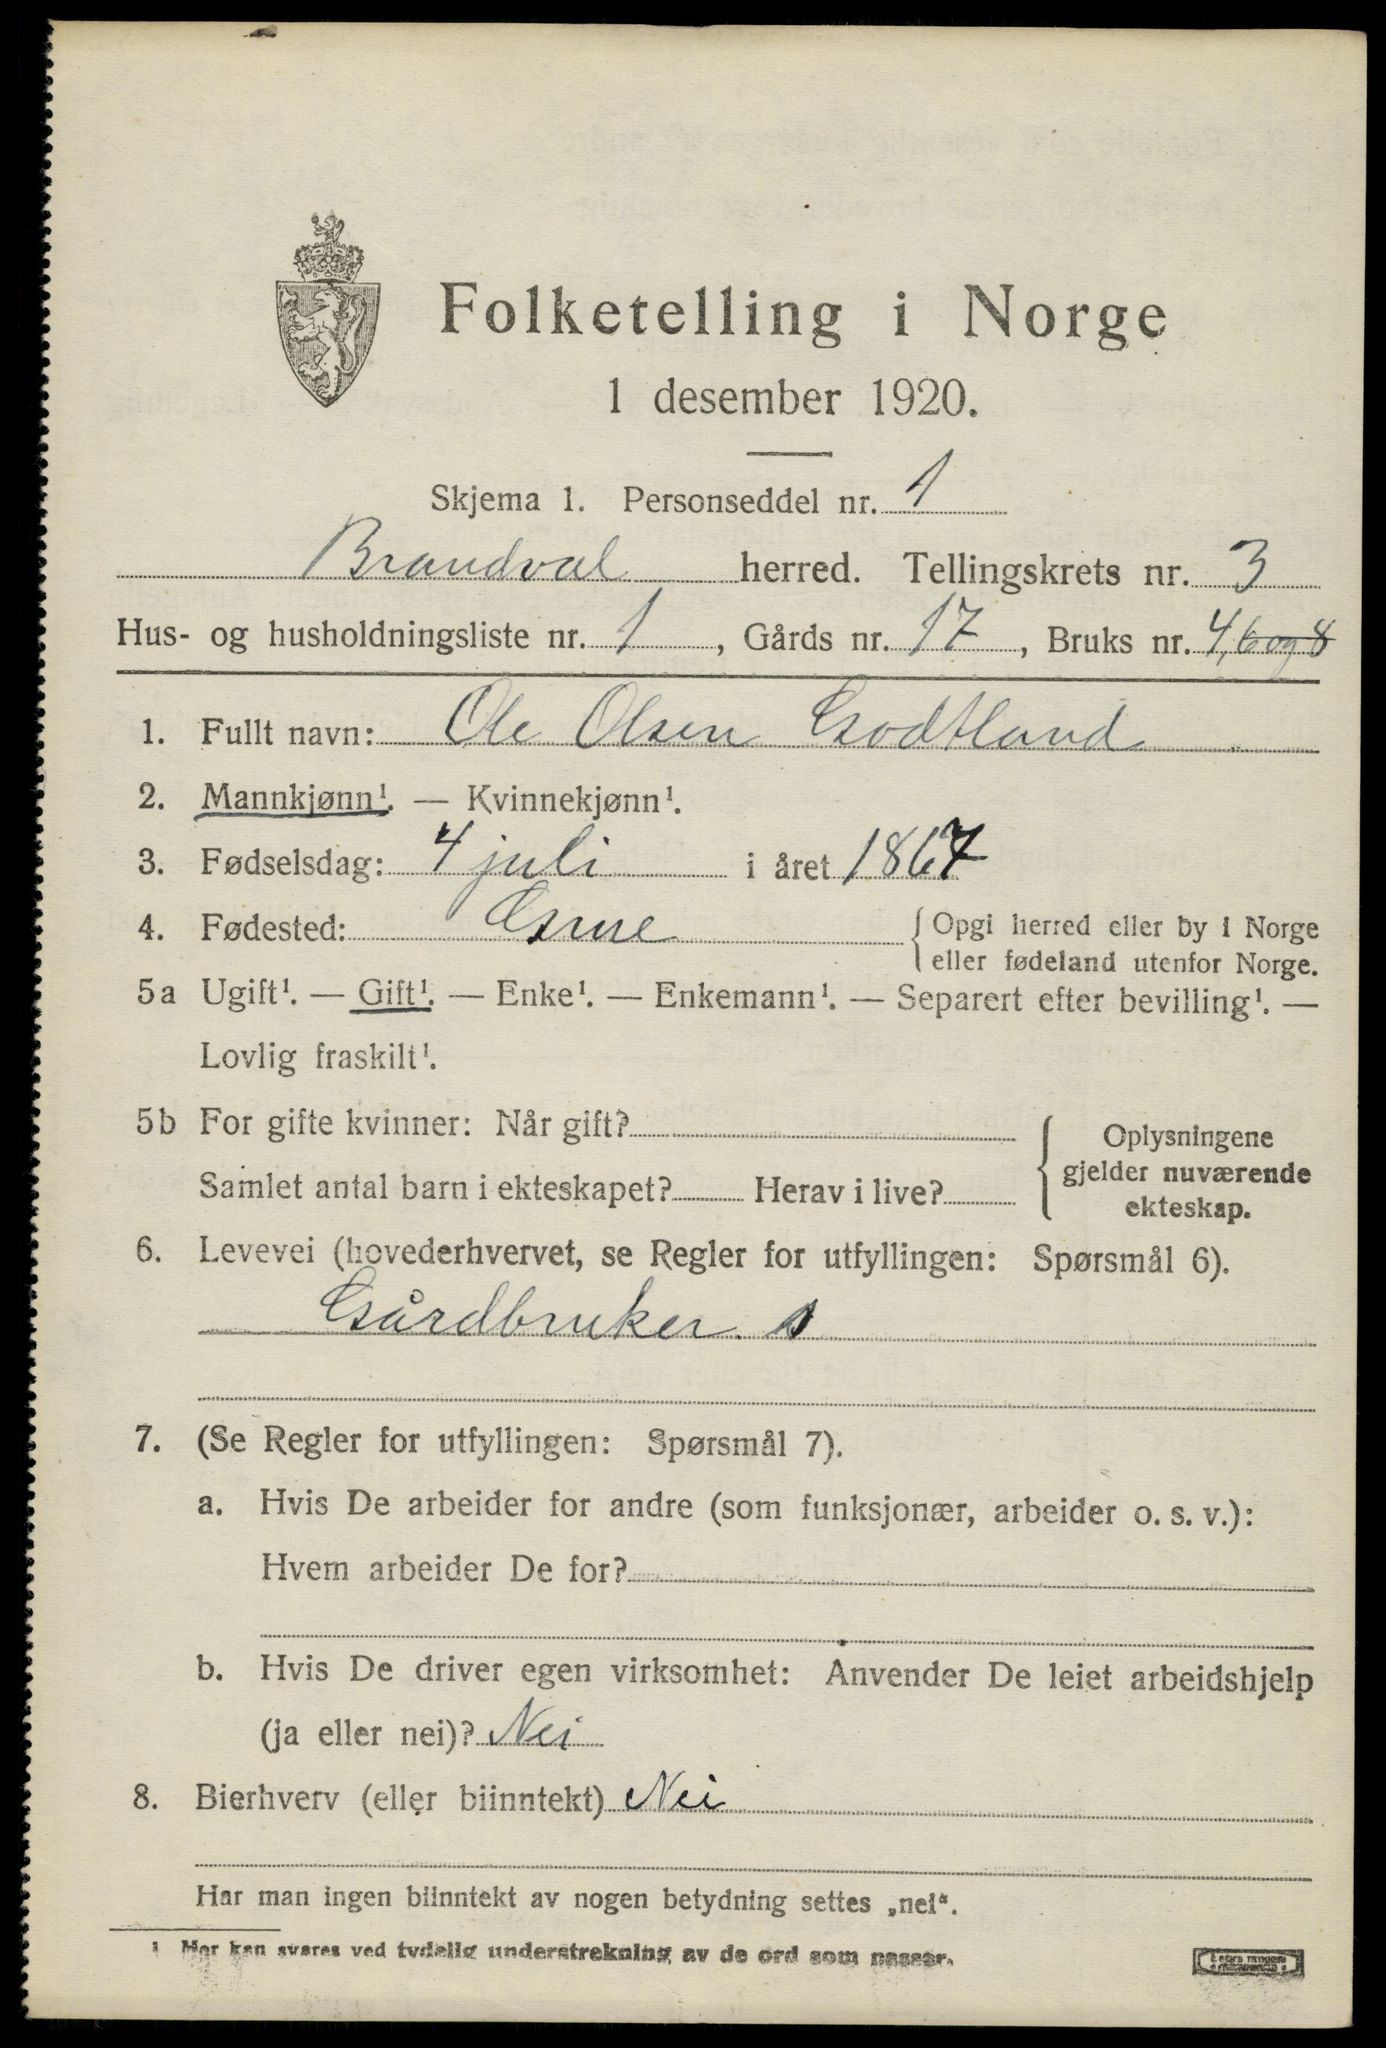 Folketelling i Norge
1 desember 1920.
Skjema 1. Personseddel nr. 1
Brandval herred. Tellingskrets nr. 3
Hus- og husholdningsliste nr. 1, Gårds nr. 17, Bruks nr. 4, 6 og 8
1. Fullt navn: Ole Olsen Godtland
2. Mannkjønn¹. — Kvinnekjønn¹.
3. Fødselsdag: 4 juli i året 1867
4. Fødested: Grue { Opgi herred eller by i Norge
eller fødeland utenfor Norge.
5a Ugift¹. — Gift¹. — Enke¹. — Enkemann¹. — Separert efter bevilling¹. —
Lovlig fraskilt¹.
5b For gifte kvinner: Når gift?
Samlet antal barn i ekteskapet? Herav i live?
Oplysningene
gjelder nuværende
ekteskap.
6. Levevei (hovederhvervet, se Regler for utfyllingen: Spørsmål 6).
Gårdbruker. s
7. (Se Regler for utfyllingen: Spørsmål 7).
a. Hvis De arbeider for andre (som funksjonær, arbeider o. s. v.):
Hvem arbeider De for?
b. Hvis De driver egen virksomhet: Anvender De leiet arbeidshjelp
(ja eller nei)? Nei
8. Bierhverv (eller biinntekt) Nei
Har man ingen biinntekt av nogen betydning settes „nei“.
1 Her kan svares ved tydelig understrekning av de ord som passer.